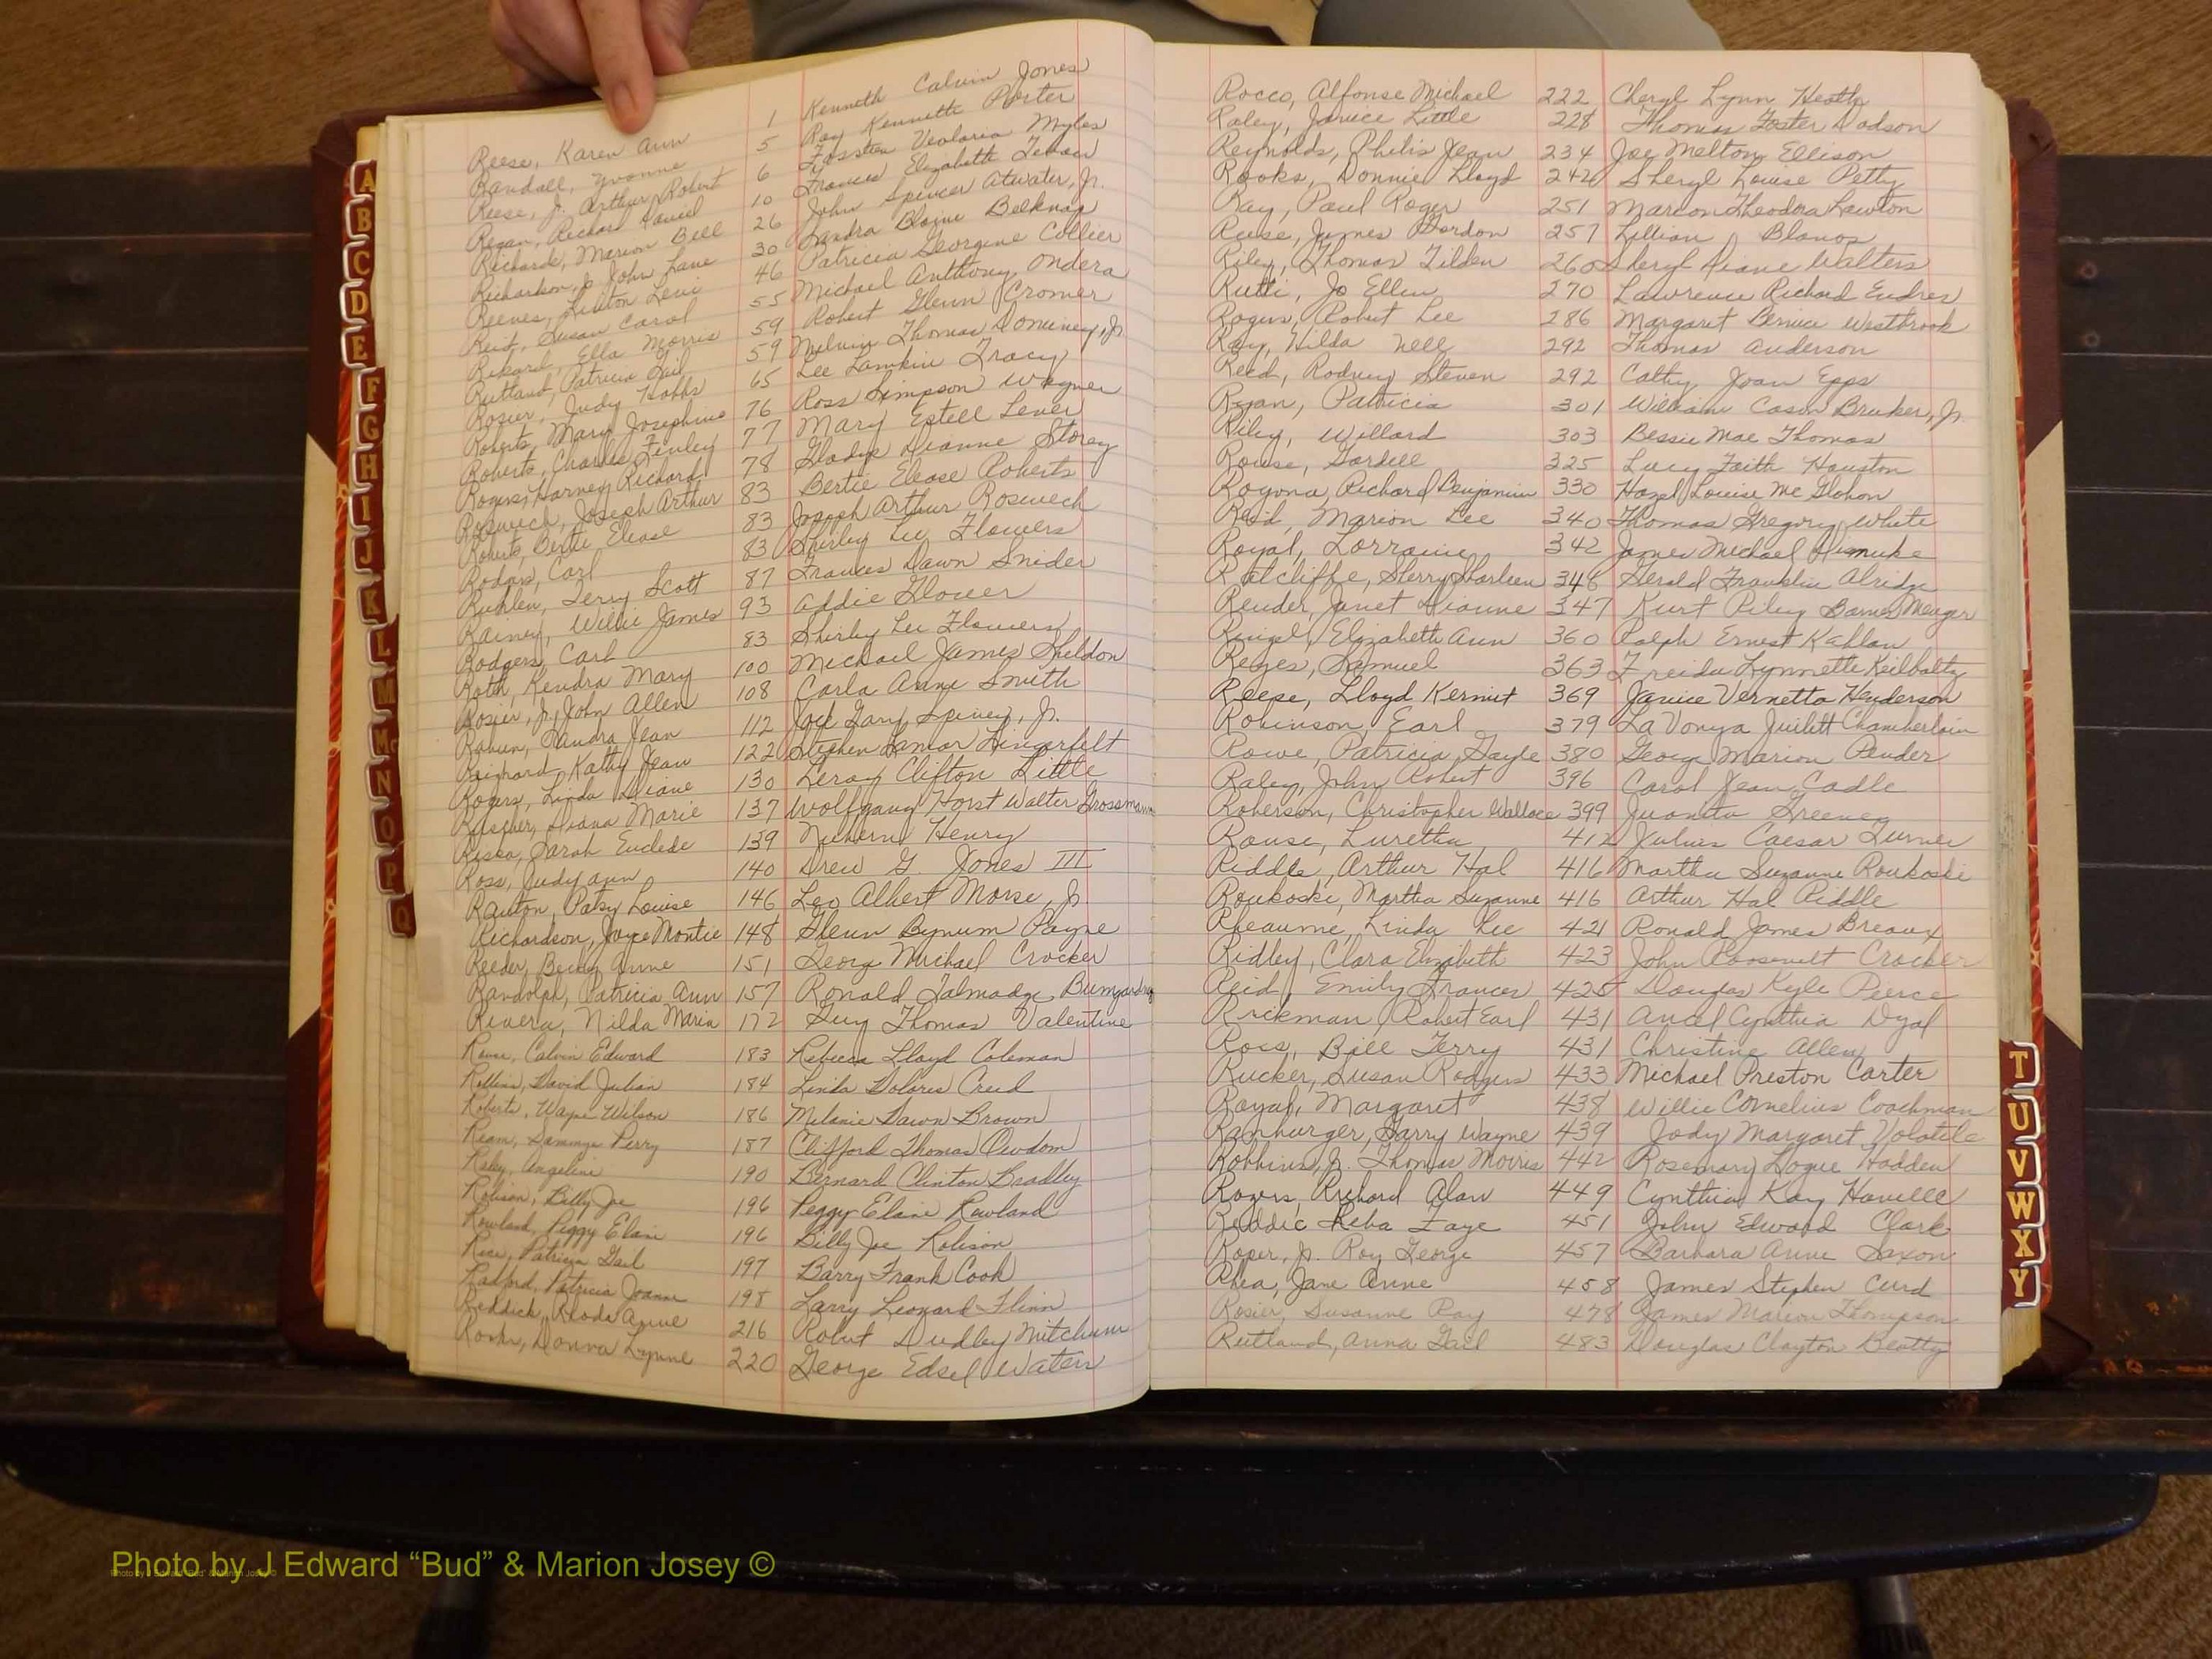 Reese, Karen Ann 1 Kenneth Calvin Jones
Randall, Yvonne 5 Roy Kenneth Porter
Reese, Jr. Arthur Robert 6 Veoloria Myles
Regan, Richard David 10 Frances Elizabeth
Richards, Marion Bell 26 John Spencer Atwater, Jr.
Richardson, Jr John Lane 30 Sandra Blaine Belknap
Reeves, Linton Levi 46 Patricia Georgine Collier
Reid, Susan Carol 55 Michael Anthony Ondera
Rikard, Ella Morris 59 Robert Glenn Cromer
Rutland, Patricia Gail 59 Melvin Thomas Dominey, Jr.
Rosier, Judy Hobbs 65 Lee Lamkin Tracy
Roberts, Mary Josephine 76 Ross Simpson Wagner
Roberts, Charles Finley 77 Mary Estell Lever
Rogers, Harvey Richard 78 Gladys Dianne Storey
Roswech, Joseph Arthur 83 Bertie Elease Roberts
Roberts, Bertie Elease 83 Joseph Arthur Roswech
Rodgers, Carl 83 Shirley Lee Flowers
Ruhlen, Terry Scott 87 Frances Dawn Snider
Rainey, Willie James 93 Addie Glover
Rodgers, Carl 83 Shirley Lee Flowers
Roth, Kendra Mary 100 Michael James Sheldon
Rosier, Jr. John Allen 108 Carla Anne Smith
Rabun, Sandra Jean 112 Jack Gary Spivey, Jr.
Kathy Jean 122 Stephen Lamar Hingerfelt
Rogers, Linda Diane 130 Leroy Clifton Little
Diana Marie 137 Wolfgang Horst Walter Grossmann
Sarah Euclede 139 Henry
Ross, Judy Ann 140 Drew G. Jones III
Ranton, Patsy Louise 146 Leo Albert Morse, Jr.
Richardson, Joyce Montie 148 Glenn Bynum Payne
Reeder, Becky Anne 151 Georg Michael Crocker
Randolph, Patricia Ann 157 Ronald Talmadge Bumgardner
Rivera, Nilda Maria 172 Guy Thomas Valentine
Calvin Edward 183 Rebecca Lloyd Coleman
Rollins, David Julian 184 Linda Dolores Creed
Roberts, Wayne Wilson 186 Melanie Dawn Brown
Ream, Sammye Perry 187 Clifford Thomas Owdom
Raley, Angeline 190 Bernard Clinton Bradley
Robison, Billy Joe 196 Peggy Elaine Rowland
Rowland, Peggy Elain 196 Billy Joe Robison
Rice, Patricia Gail 197 Barry Frank Cook
Radford, Patricia Joanne 198 Larry Leonard Flinn
Reddick, Rhoda Anne 216 Robert Dudley Mitchum
Donna Lynne 220 George Edsel Waters
Rocco, Alfonse Michael 222 Cheryl Lynn Heath
Raley, Janice Little 228 Thomas Foster Dodson
Reynolds, Philis Jean 234 Joe Melton Ellison
Rooks, Donnie Lloyd 242 Sheryl Louise Petty
Ray, Paul Roger 251 Marion Theodora Lawton
Reese, James Gordon 257 Lillian Blanos
Riley, Thomas Tilden 260 Sheryl Diane Walters
Rutti, Jo Ellen 270 Lawrence Richard Endres
Rogers, Robert Lee 286 Margaret Bernice Westbrook
Ray, Hilda Nell 292 Thomas Anderson
Reed, Rodney Steven 292 Cathy Joan Epps
Ryan, Patricia 301 William Cason Bruker, Jr.
Riley, Willard 303 Bessie Mae Thomas
Rouse, Gardell 325 Lucy Faith Houston
Rogona, Richard Benjamin 330 Hazel Louise McGlohon
Reid, Marion Lee 340 Thomas Gregory White
Royal, Lorraine 342 James Michael Dismuke
Ratcliffe, Sherry Sharleen 348 Gerald Franklin Alridge
Render, Janet Dianne 347 Kurt Riley Barnes Meager
Ringel, Elizabeth Ann 360 Ralph Ernest Kahlan
Reyes, Samuel 363 Freida Lynnette Keilholtz
Reese, Lloyd Kermit 369 Janice Vernetta Henderson
Robinson, Earl 379 LaVonya Juilett Chamberlain
Rowe, Patricia Gayle 380 Georg Marion Pender
Raley, John Robert 396 Carol Jean Cadle
Roberson, Christopher Wallace 399 Juanita Greene
Rouse, Luretha 412 Julius Caesar Turner
Riddle, Arthur Hal 416 Martha Suzanne Roukoski
Roukoski, Martha Suzanne 416 Arthur Hal Riddle
Rheaume, Linda Lee 421 Ronald James Breaux
Ridley, Clara Elizabeth 423 John Roosevelt Crocker
Reid, Emily Frances 425 Douglas Kyle Pierce
Rickman, Robert Earl 431 Ancel Cynthia Dyal
Ross, Bill Terry 431 Christine Allen
Rucker, Susan Rodgers 433 Michael Preston Carter
Royal, Margaret 438 Willie Cornelius Coachman
Ramburger, Garry Wayne 439 Jody Margaret Volatile
Robbins, Jr. Thomas Morris 442 Rosemary Logue Hadden
Rogers, Richard Alan 449 Cynthia Kay Havelle
Reddic Reba Faye 451 John Edward Clark
Roper, Jr. Roy George 457 Barbara Anne Saxon
Rhea, Jane Anne 458 James Stephen Curd
Rosier, Susanne Ray 478 James Marion Thompson
Rutland, Anna Gail 483 Douglas Clayton Beatty
A
B
C
D
E
F
G
H
I
J
K
L
M
Mc
N
O
P
Q
T
U
V
W
X
Y
Photo by J Edward “Bud” & Marion Josey ©
Photo by J Edward “Bud” & Marion Josey ©